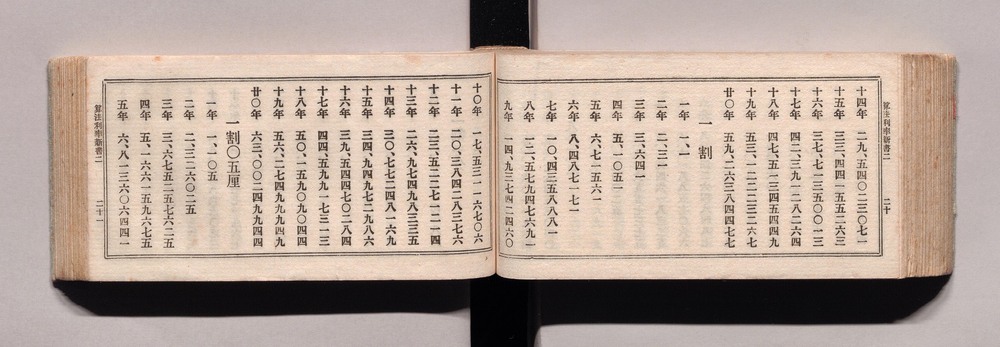 算法利率新書二
二十
十四年 二九、五四〇二三〇七一
十五年 三三、四四一五五二六三
十六年 三七、七一三五〇〇一三
十七年 四二、三九一二八二六四
十八年 四七、五一三四五四四九
十九年 五三、一二二二三二六七
廿〇年 五九、二六三八四四七七
一割
一年 一、一
二年 二、三一
三年 三、六四一
四年 五、一〇五一
五年 六、七一五六一
六年 八、四八七一七一
七年 一〇、四三五八八八一
八年 一二、五七九四七六九一
九年 一四、九三七四二四六〇
十〇年 一七、五三一一六七〇六
十一年 二〇、三八四二八三七六
十二年 二三、五二二七一二一四
十三年 二六、九七四九八三三五
十四年 三〇、七七二四八一六九
十五年 三四、九四九七二九八六
十六年 三九、五四四七〇二八四
十七年 四四、五九九一七三一三
十八年 五〇、一五九〇九〇四四
十九年 五六、二七四九九九四九
廿〇年 六三、〇〇二四九九四四
一割〇五厘
一年 一、一〇五
二年 二、三二六〇二五
三年 三、六七五二五七六二五
四年 五、一六六一五九六七五
五年 六、八一三六〇六四四一
算法利率新書二
二十一